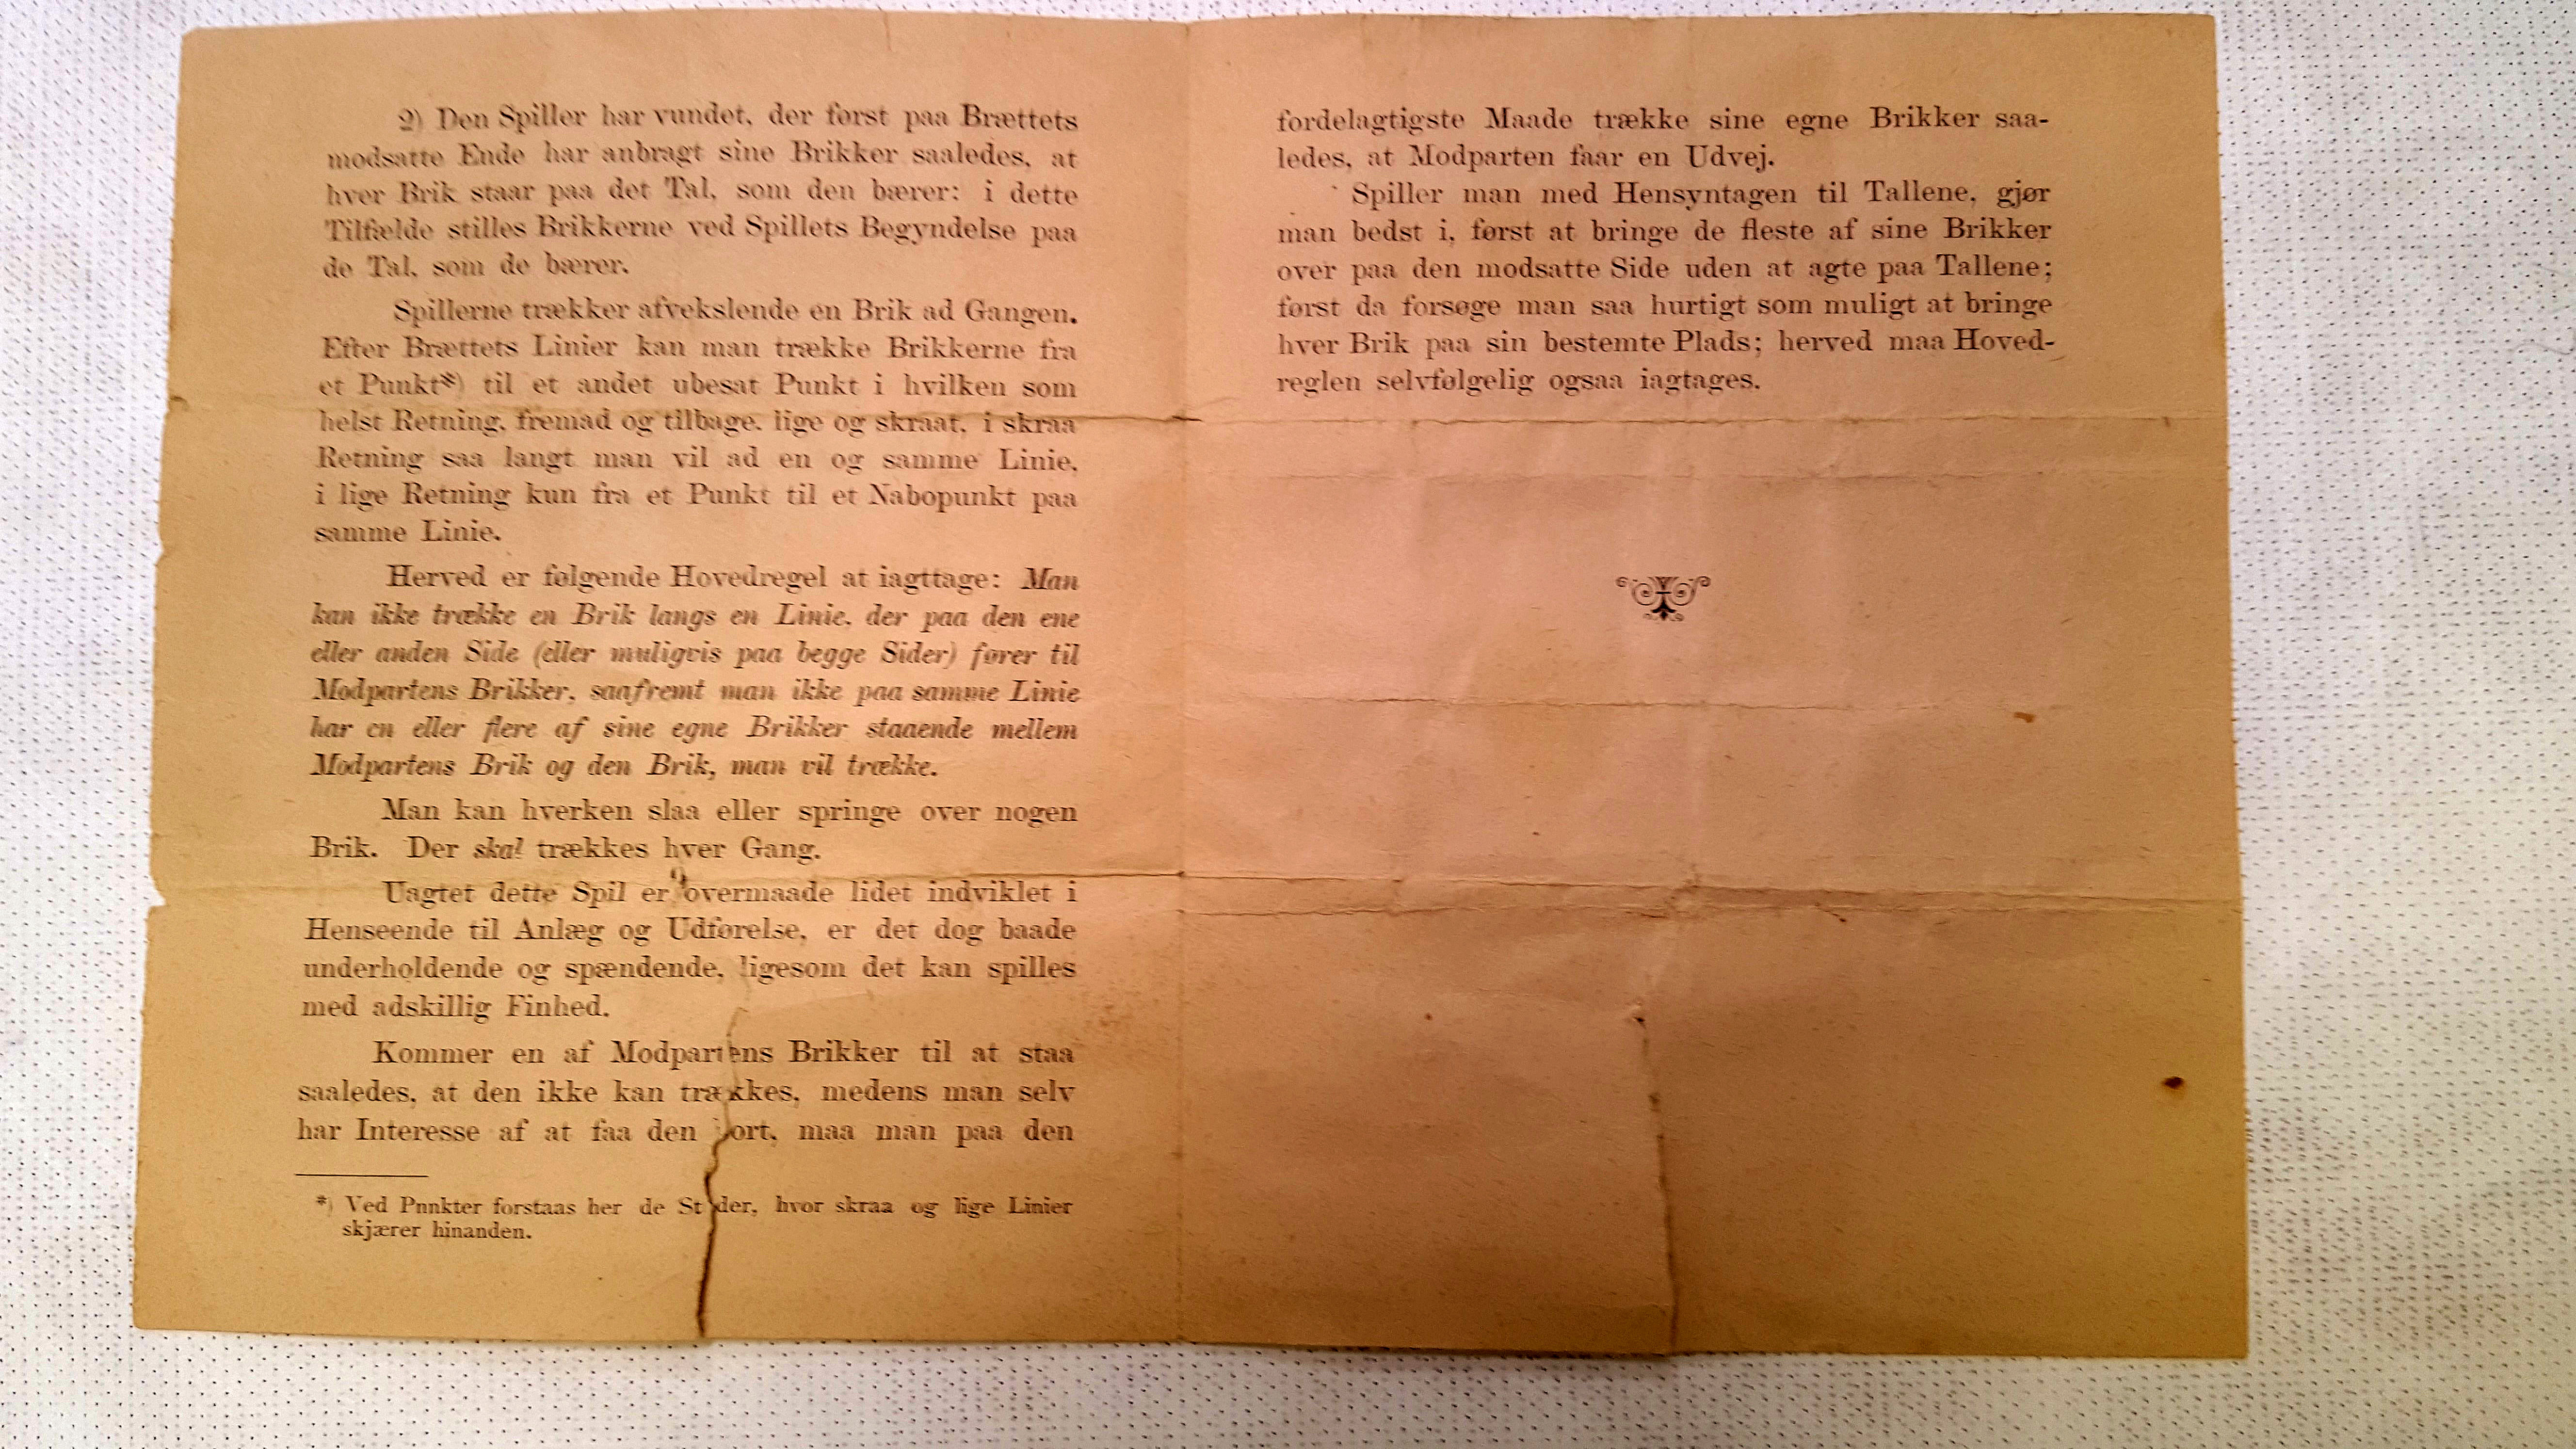 2) Den Spiller har vundet, der først paa Brættets
modsatte Ende har anbragt sine Brikker saaledes, at
hver Brik staar paa det Tal, som den bærer: i dette
Tilfælde stilles Brikkerne ved Spillets Begyndelse paa
de Tal, som de bærer.
Spillerne trækker afvekslende en Brik ad Gangen.
Efter Brættets Linier kan man trække Brikkerne fra
et Punkt*) til et andet ubesat Punkt i hvilken som
helst Retning, fremad og tilbage, lige og skraat, i skraa
Retning saa langt man vil ad en og samme Linie,
i lige Retning kun fra et Punkt til et Nabopunkt paa
samme Linie.
Herved er følgende Hovedregel at iagttage: Man
kan ikke trække en Brik langs en Linie, der paa den ene
eller anden Side (eller muligvis paa begge Sider) fører til
Modpartens Brikker, saafremt man ikke paa samme Linie
har en eller flere af sine egne Brikker staaende mellem
Modpartens Brik og den Brik, man vil trække.
Man kan hverken slaa eller springe over nogen
Brik. Der skal trækkes hver Gang.
Uagtet dette Spil er overmaade lidet indviklet i
Henseende til Anlæg og Udførelse, er det dog baade
underholdende og spændende, ligesom det kan spilles
med adskillig Finhed.
Kommer en af Modpartens Brikker til at staa
saaledes, at den ikke kan trækkes, medens man selv
har Interesse af at faa den bort, maa man paa den
*) Ved Pnnkter forstaas her de Steder, hvor skraa og lige Linier
skjærer hinanden.
fordelagtigste Maade trække sine egne Brikker saa-
ledes, at Modparten faar en Udvej.
Spiller man med Hensyntagen til Tallene, gjør
man bedst i, først at bringe de fleste af sine Brikker
over paa den modsatte Side uden at agte paa Tallene;
først da forsøge man saa hurtigt som muligt at bringe
hver Brik paa sin bestemte Plads; herved maa Hoved-
reglen selvfølgelig ogsaa iagtages.